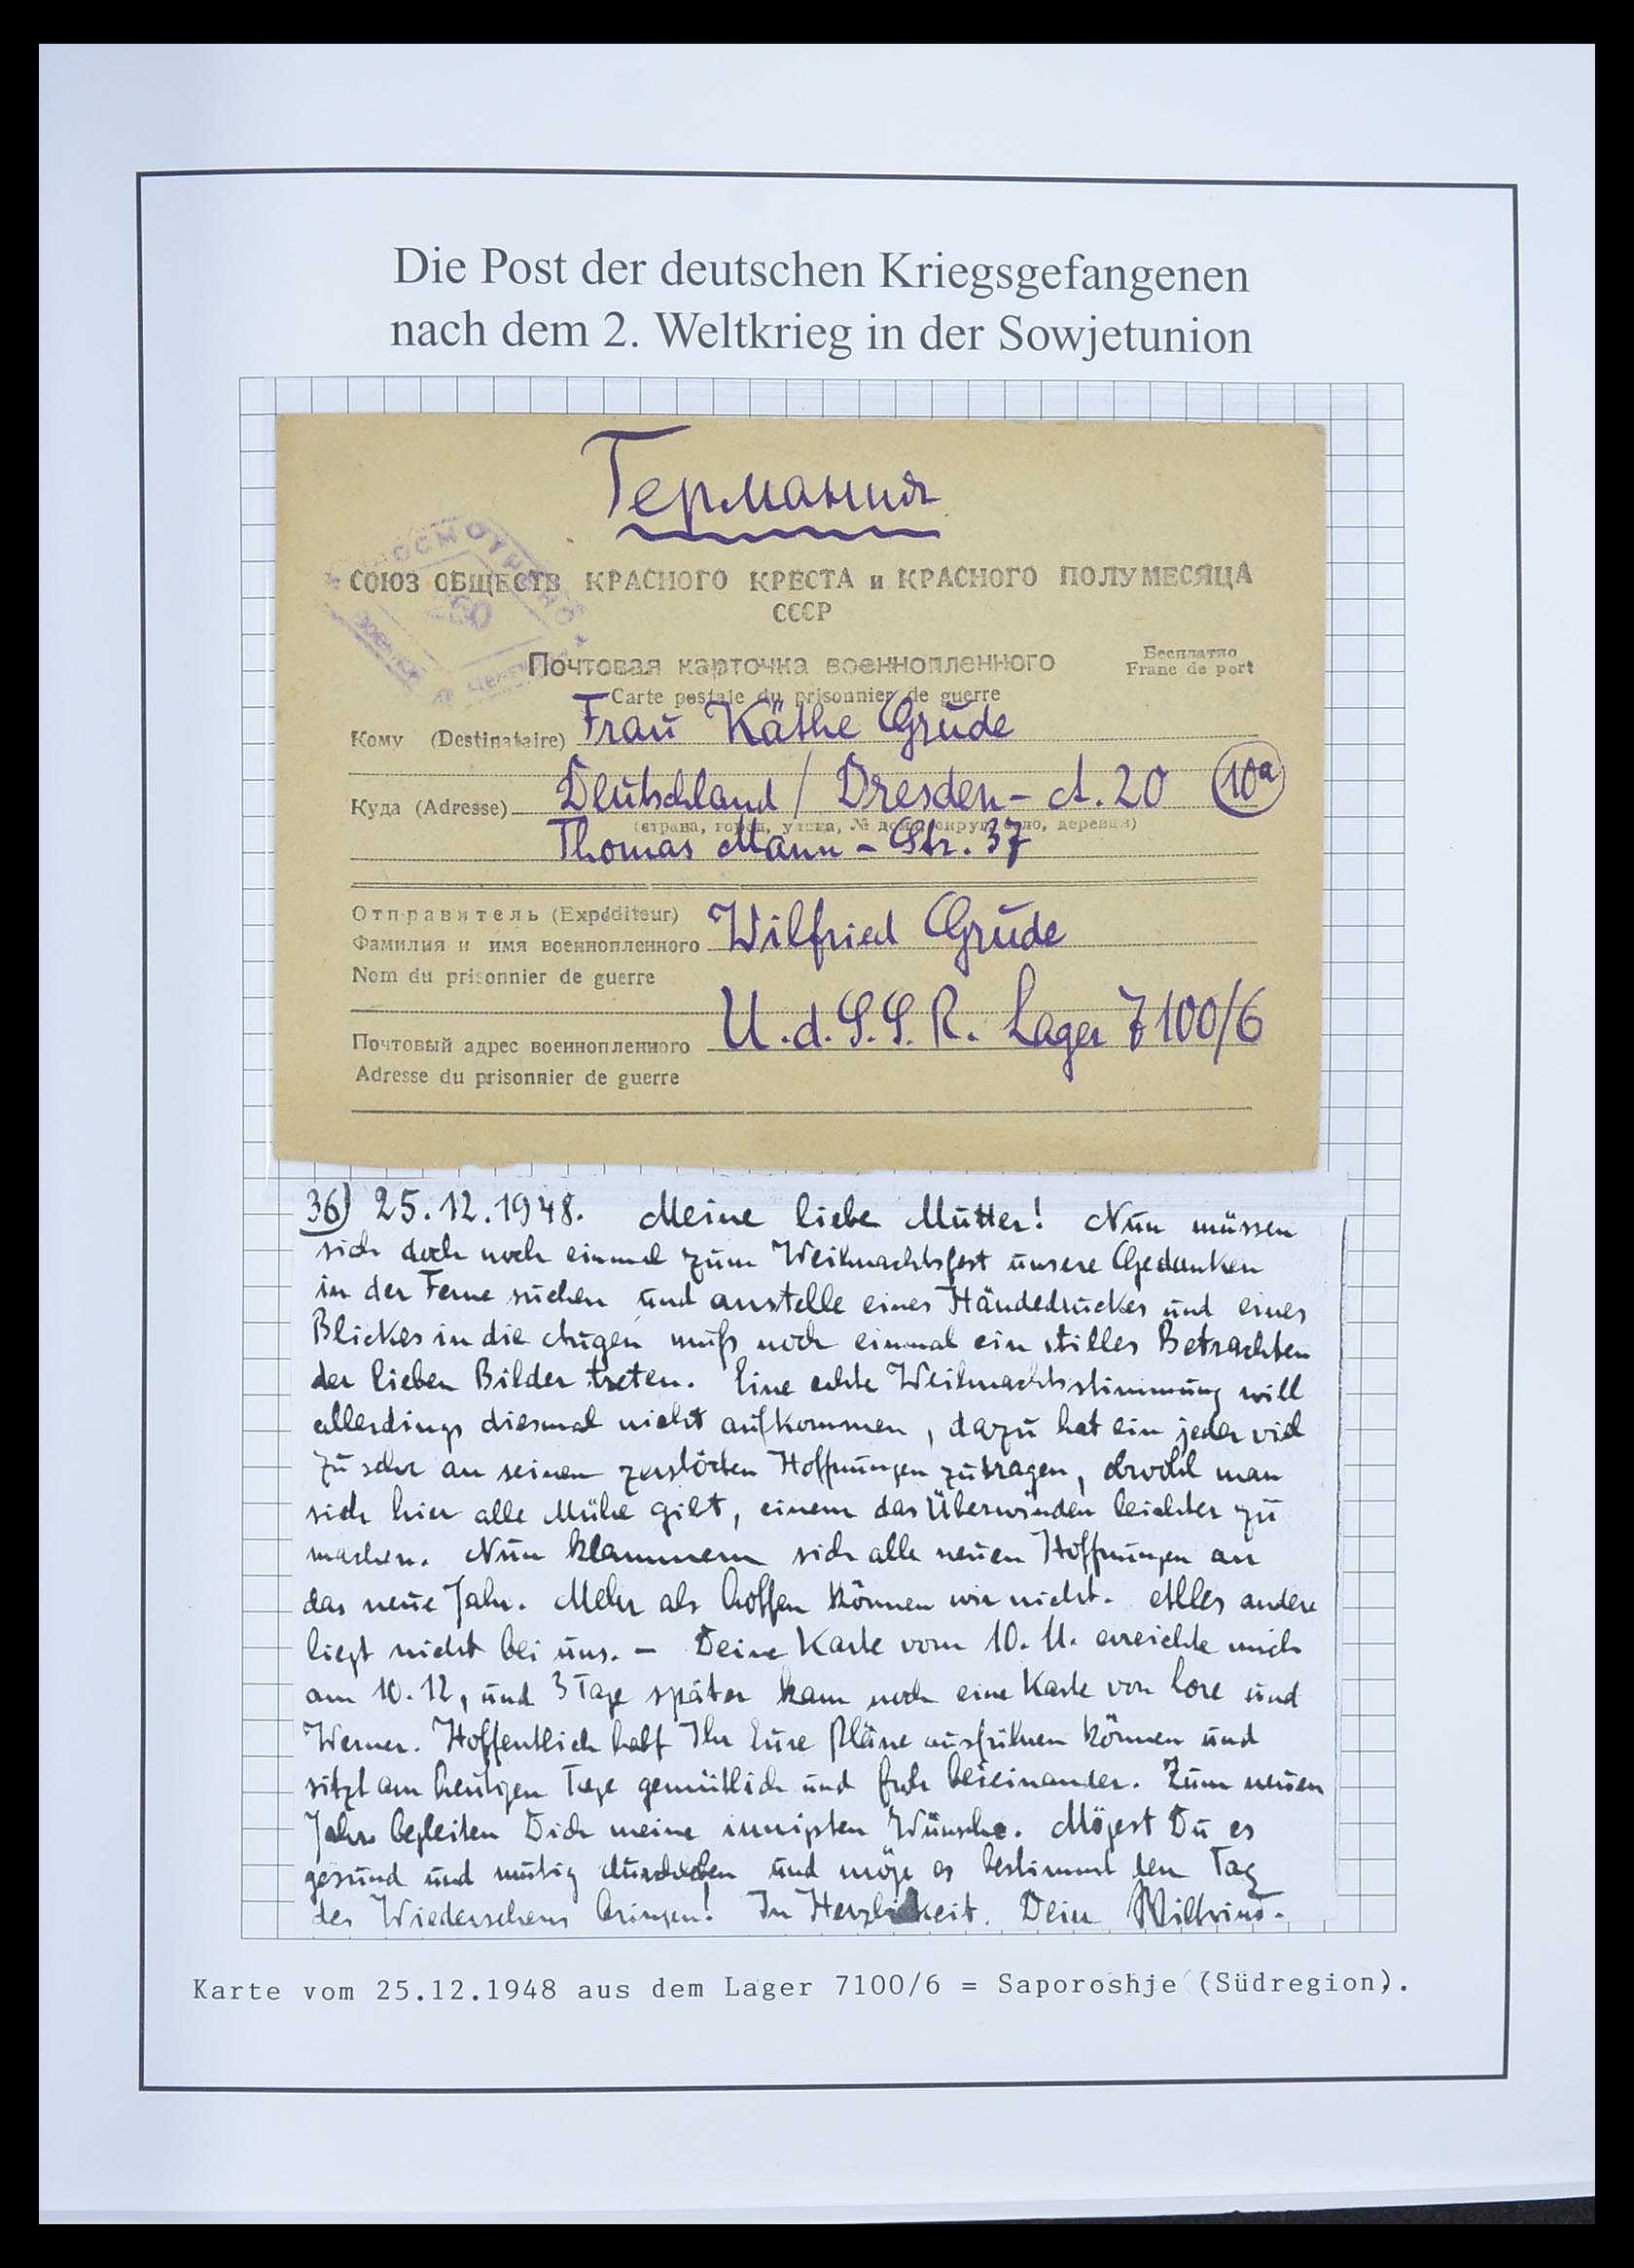 Die Post der deutschen Kriegsgefangenen
nach dem 2. Weltkrieg in der Sowjetunion
Германия
СОЮЗ ОБЩЕСТВ КРАСНОГО КРЕСТА и КРАСНОГО ПОЛУМЕСЯЦА
СССР
Почтовая карточка военнопленного
Бесплатно
Franc de port
Carte postale du prisonnier de guerre
Кому (Destinataire) Frau Käthe Grude
Куда (Adresse) Deutschland / Dresden - A. 20 10a
(страна, город, улица, № дома, округ, село, деревня)
Thomas Mann - Str. 37
Отправитель (Expéditeur)
Фамилия и имя военнопленного Wilfried Grude
Nom du prisonnier de guerre
Почтовый адрес военнопленного U.d.S.S.R. Lager 7100/6
Adresse du prisonnier de guerre
36) 25.12.1948. Meine liebe Mutter! Nun müssen
sich doch noch einmal zum Weihnachtsfest unsere Gedanken
in der Ferne suchen und anstelle eines Händedruckes und eines
Blickes in die Augen muß noch einmal ein stilles Betrachten
der lieben Bilder treten. Eine echte Weihnachtsstimmung will
allerdings diesmal nicht aufkommen, dazu hat ein jeder viel
zu sehr an seinen zerstörten Hoffnungen zu tragen, obwohl man
sich hier alle Mühe gibt, einem das Überwinden leichter zu
machen. Nun klammern sich alle neuen Hoffnungen an
das neue Jahr. Mehr als hoffen können wir nicht. Alles andere
liegt nicht bei uns. – Deine Karte vom 10.11. erreichte mich
am 10.12, und 3 Tage später kam noch eine Karte von Lore und
Werner. Hoffentlich habt Ihr Eure Pläne ausführen können und
sitzt am heutigen Tage gemütlich und froh beieinander. Zum neuen
Jahre begleiten Dich meine innigsten Wünsche. Mögest Du es
gesund und mutig durchleben und möge es bestimmt den Tag
des Wiedersehens bringen! In Herzlichkeit. Dein Wilfried.
Karte vom 25.12.1948 aus dem Lager 7100/6 = Saporoshje (Südregion).